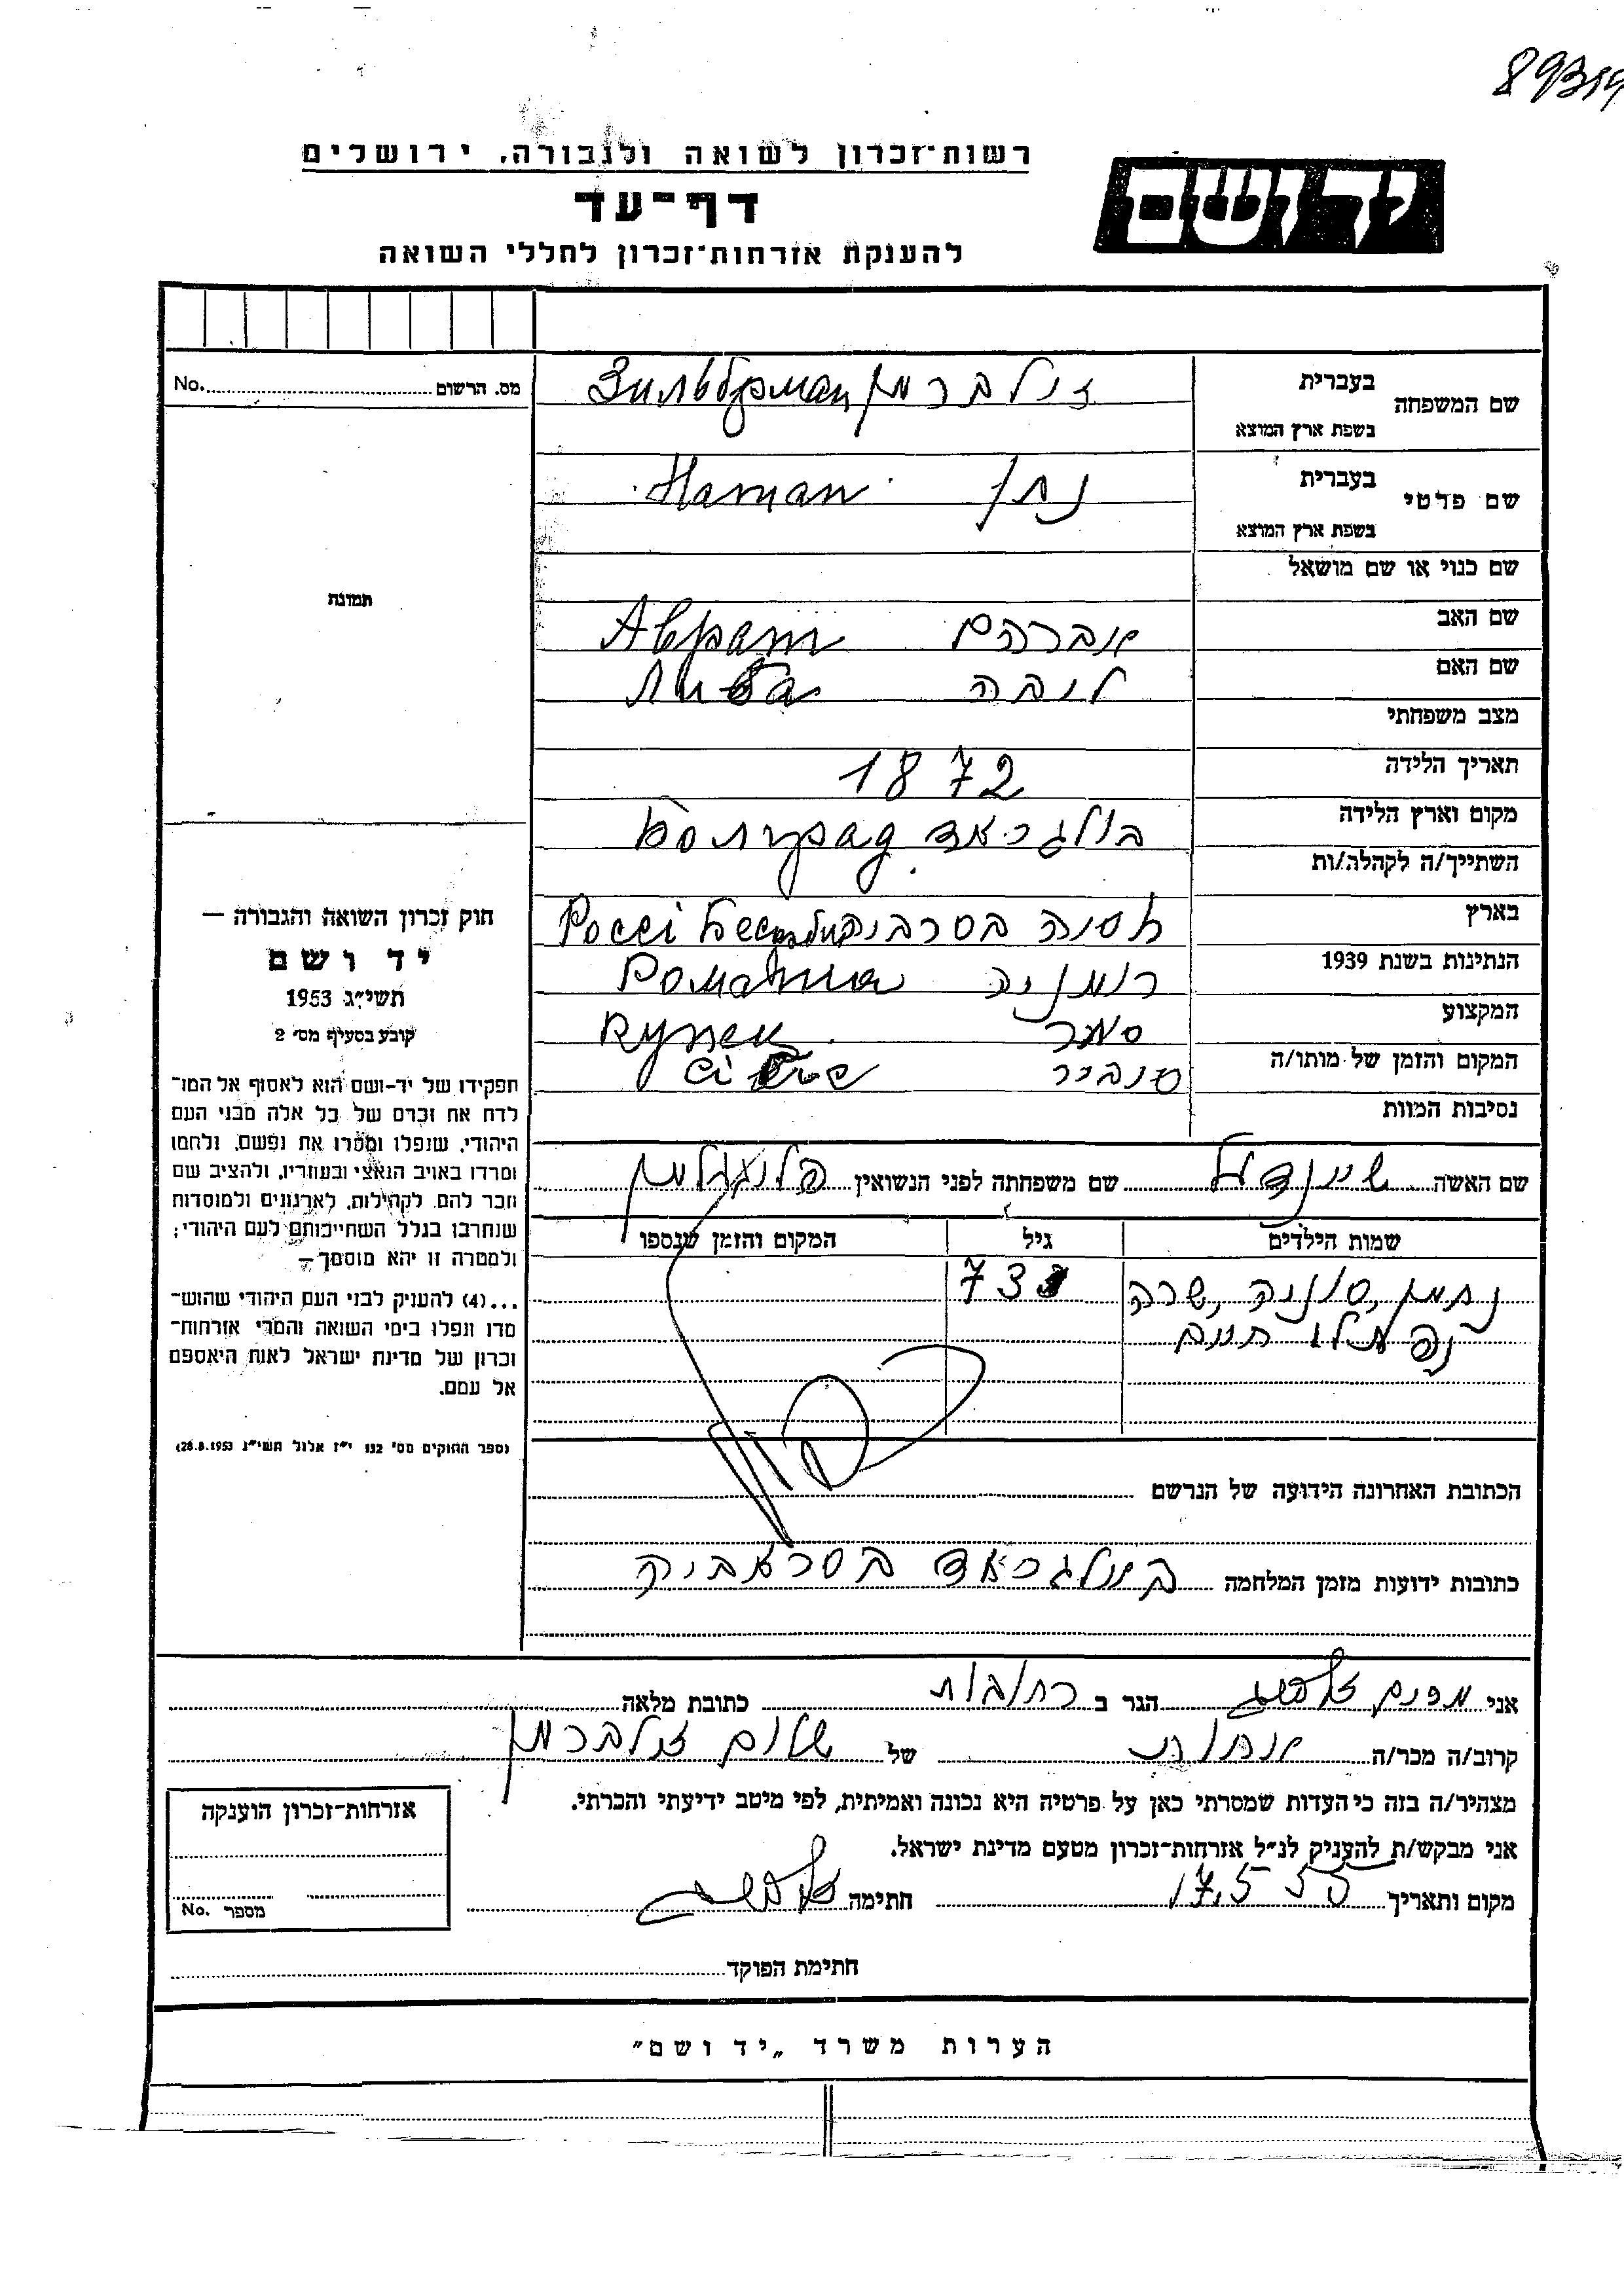 רשות־זכרון לשואה ולגבורה, ירושלים
דף־עד
להענקת אזרחות־זכרון לחללי השואה
יד ושם
מס. הרשום No.
שם המשפחה בעברית זילברמן
בשפת ארץ המוצא
שם פרטי בעברית נתן Натан
בשפת ארץ המוצא
שם כנוי או שם מושאל
תמונה
שם האב אברהם Аврам
שם האם ליבה Либа
מצב משפחתי
תאריך הלידה 1872
מקום וארץ הלידה בולגראד Болград
השתייך/ה לקהלה/ות
בארץ בסרביה
הנתינות בשנת 1939 רומניה Романиа
המקצוע סוחר Купец
המקום והזמן של מותו/ה סיביר
נסיבות המוות
חוק זכרון השואה והגבורה —
יד ושם
תשי״ג 1953
קובע בסעיף מס׳ 2
תפקידו של יד-ושם הוא לאסוף אל המו־
לדת את זכרם של כל אלה מבני העם
היהודי, שנפלו ומסרו את נפשם, נלחמו
ומרדו באויב הנאצי ובעוזריו, ולהציב שם
וזכר להם, לקהילות, לארגונים ולמוסדות
שנחרבו בגלל השתייכותם לעם היהודי;
ולמטרה זו יהא מוסמך —
...(4) להעניק לבני העם היהודי שהוש־
מדו ונפלו בימי השואה והמרי אזרחות־
זכרון של מדינת ישראל לאות היאספם
אל עמם.
(ספר החוקים מס׳ 132 י״ז אלול תשי״ג 28.8.1953)
שם האשה שיינדל שם משפחתה לפני הנשואין
שמות הילדים גיל המקום והזמן שנספו
נחמן, סוניה, שרה 73
נפתלי חיים
הכתובת האחרונה הידועה של הנרשם
כתובות ידועות מזמן המלחמה בולגראד בסראביה
אני הגר ב רחובות כתובת מלאה
קרוב/ה מכר/ה של שלום זילברמן
מצהיר/ה בזה כי העדות שמסרתי כאן על פרטיה היא נכונה ואמיתית, לפי מיטב ידיעתי והכרתי.
אני מבקש/ת להעניק לנ״ל אזרחות־זכרון מטעם מדינת ישראל.
מקום ותאריך 17.5.55 חתימה
חתימת הפוקד
אזרחות־זכרון הוענקה
מספר No.
הערות משרד „יד ושם״